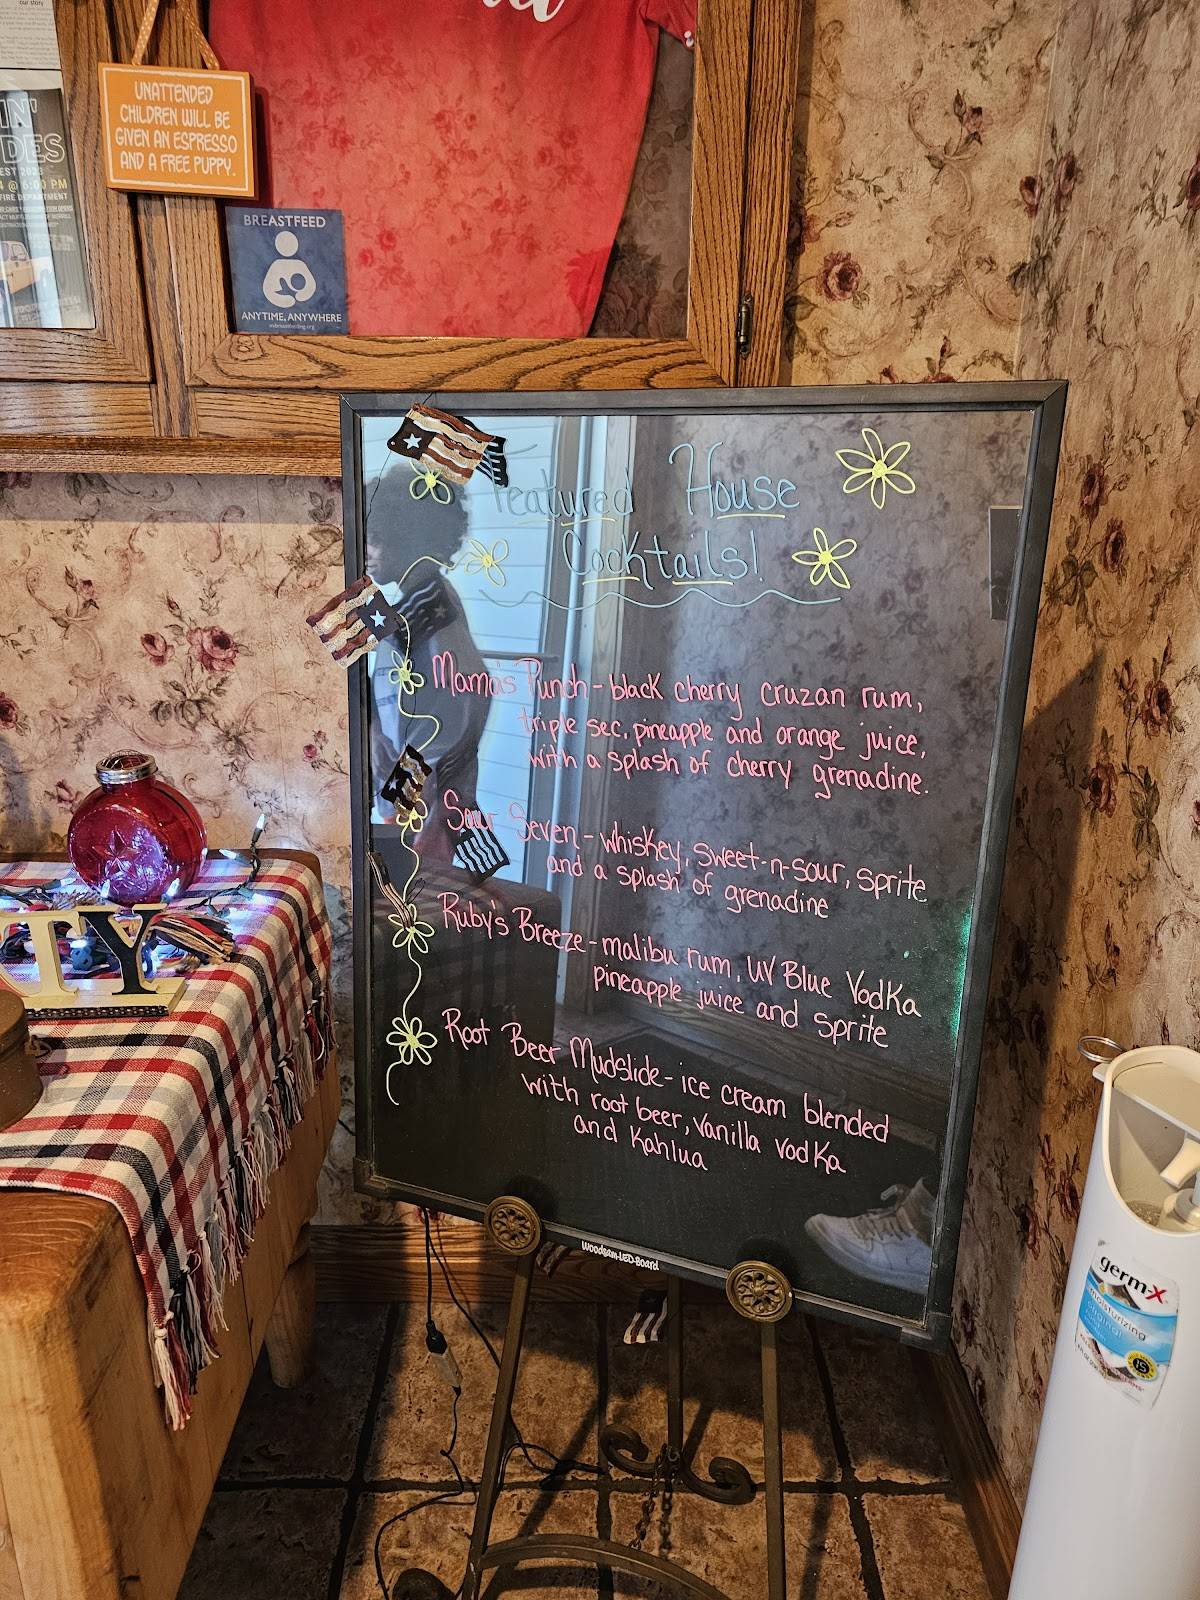 our story
IN'
DES
EST 2023
@ 6:00 PM
FIRE DEPARTMENT
UNATTENDED
CHILDREN WILL BE
GIVEN AN ESPRESSO
AND A FREE PUPPY.
BREASTFEED
ANYTIME, ANYWHERE
Featured House
Cocktails!
Mama's Punch - black cherry cruzan rum,
triple sec, pineapple and orange juice,
with a splash of cherry grenadine.
Sour Seven - whiskey, sweet-n-sour, sprite
and a splash of grenadine
Ruby's Breeze - malibu rum, UV Blue Vodka
pineapple juice and sprite
Root Beer Mudslide - ice cream blended
with root beer, vanilla vodka
and Kahlua
Woodsam-LED-Board
TY
germ-x
moisturizing
original